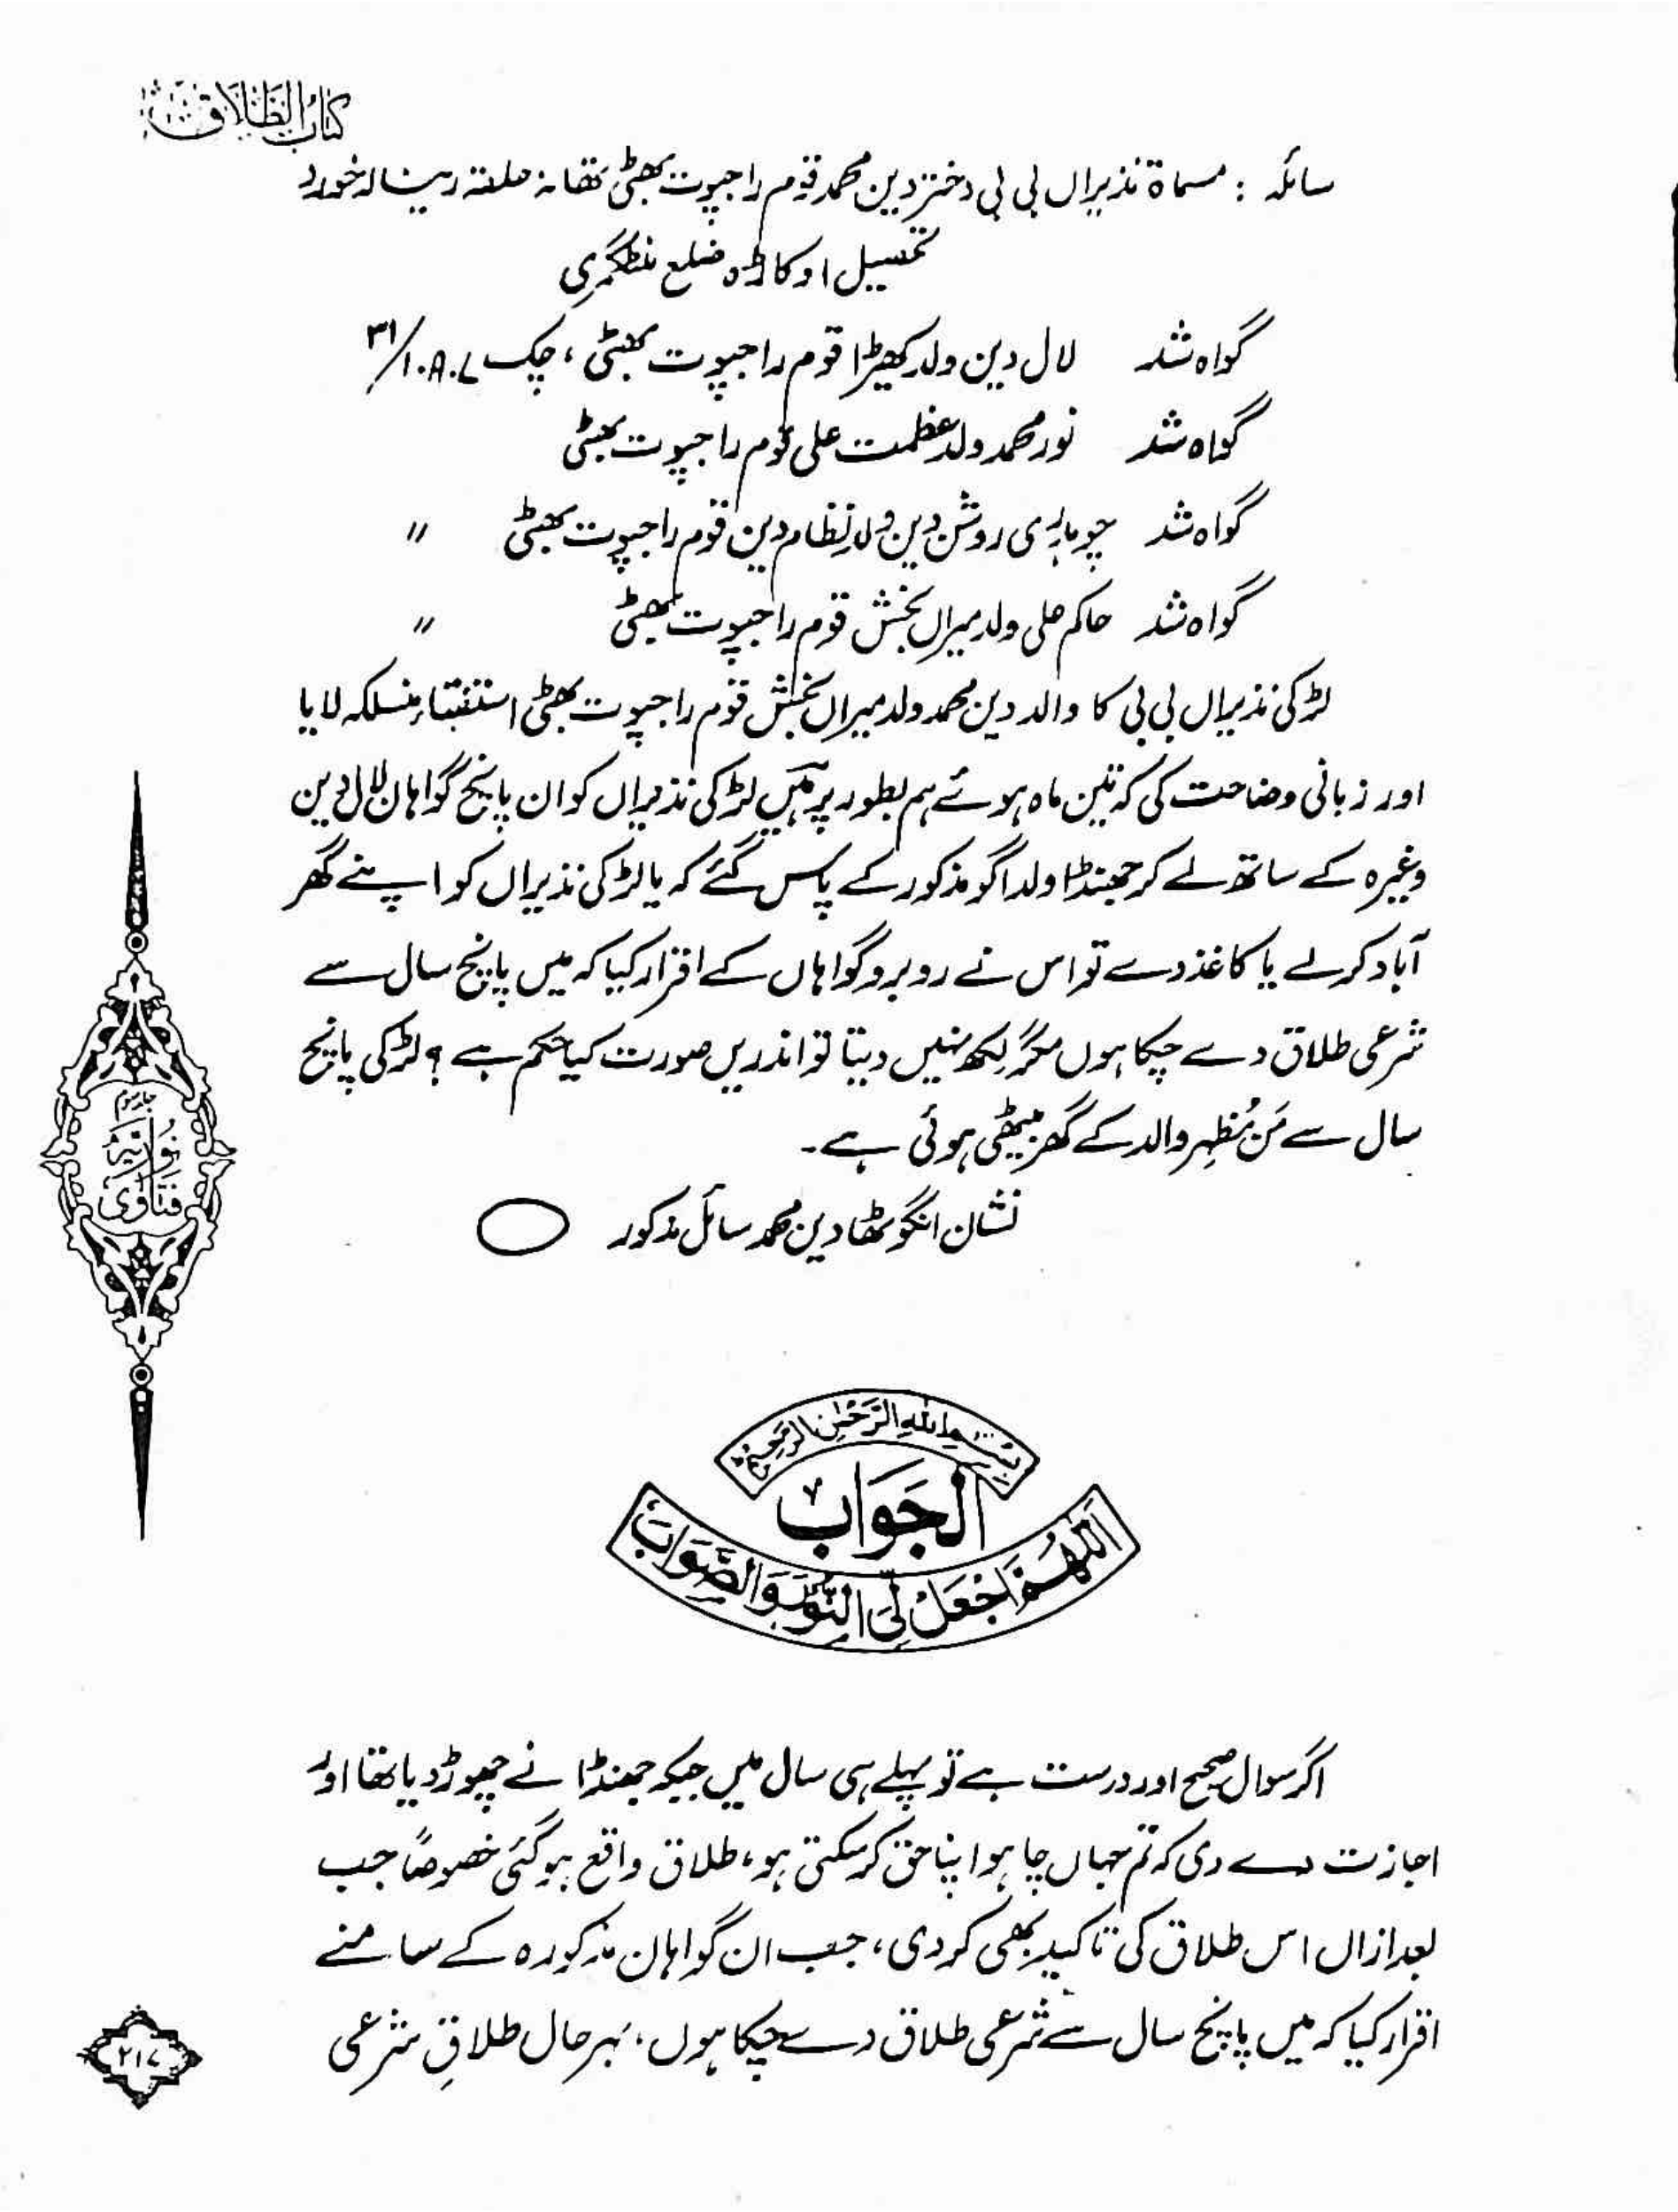 کتاب الطلاق
سائلہ : مسماۃ نذیراں بی بی دختر دین محمد قوم راجپوت بھٹی تھانہ حلقہ رینالہ خورد
تحصیل اوکاڑہ ضلع منٹگمری
گواہ شد لال دین ولد کھیڑا قوم راجپوت بھٹی ، چک ۳۱/۱.A.L
گواہ شد نور محمد ولد عظمت علی قوم راجپوت بھٹی
گواہ شد چوہدری روشن دین ولد نظام دین قوم راجپوت بھٹی "
گواہ شد حاکم علی ولد میراں بخش قوم راجپوت بھٹی "
لڑکی نذیراں بی بی کا والد دین محمد ولد میراں بخش قوم راجپوت بھٹی استفتاء منسلکہ لایا
اور زبانی وضاحت کی کہ تین ماہ ہوئے ہم بطور پرہیں لڑکی نذیراں کو ان پانچ گواہان لال دین
وغیرہ کے ساتھ لے کر جھنڈا ولد اگو مذکور کے پاس گئے کہ یا لڑکی نذیراں کو اپنے گھر
آباد کر لے یا کاغذ دے تو اس نے روبرو گواہاں کے اقرار کیا کہ میں پانچ سال سے
شرعی طلاق دے چکا ہوں مگر لکھ نہیں دیتا تو اندریں صورت کیا حکم ہے ؟ لڑکی پانچ
سال سے مَن مُظہِر والد کے گھر بیٹھی ہوئی ہے۔
نشان انگوٹھا دین محمد سائل مذکور
جلد سوم
نُوریّہ
فتاویٰ
بسم اللہ الرحمٰن الرحیم
الجَوَاب
اَللّٰهُمَّ اجْعَلْ لِّیَ النُّوْرَ وَالصَّوَابَ
اگر سوال صحیح اور درست ہے تو پہلے ہی سال میں جبکہ جھنڈا نے چھوڑ دیا تھا اور
اجازت دے دی کہ تم جہاں چاہو اپنا حق کر سکتی ہو، طلاق واقع ہو گئی خصوصاً جب
بعد ازاں اس طلاق کی تاکید بھی کر دی، جب ان گواہان مذکورہ کے سامنے
اقرار کیا کہ میں پانچ سال سے شرعی طلاق دے چکا ہوں، بہرحال طلاقِ شرعی
۲۱۷